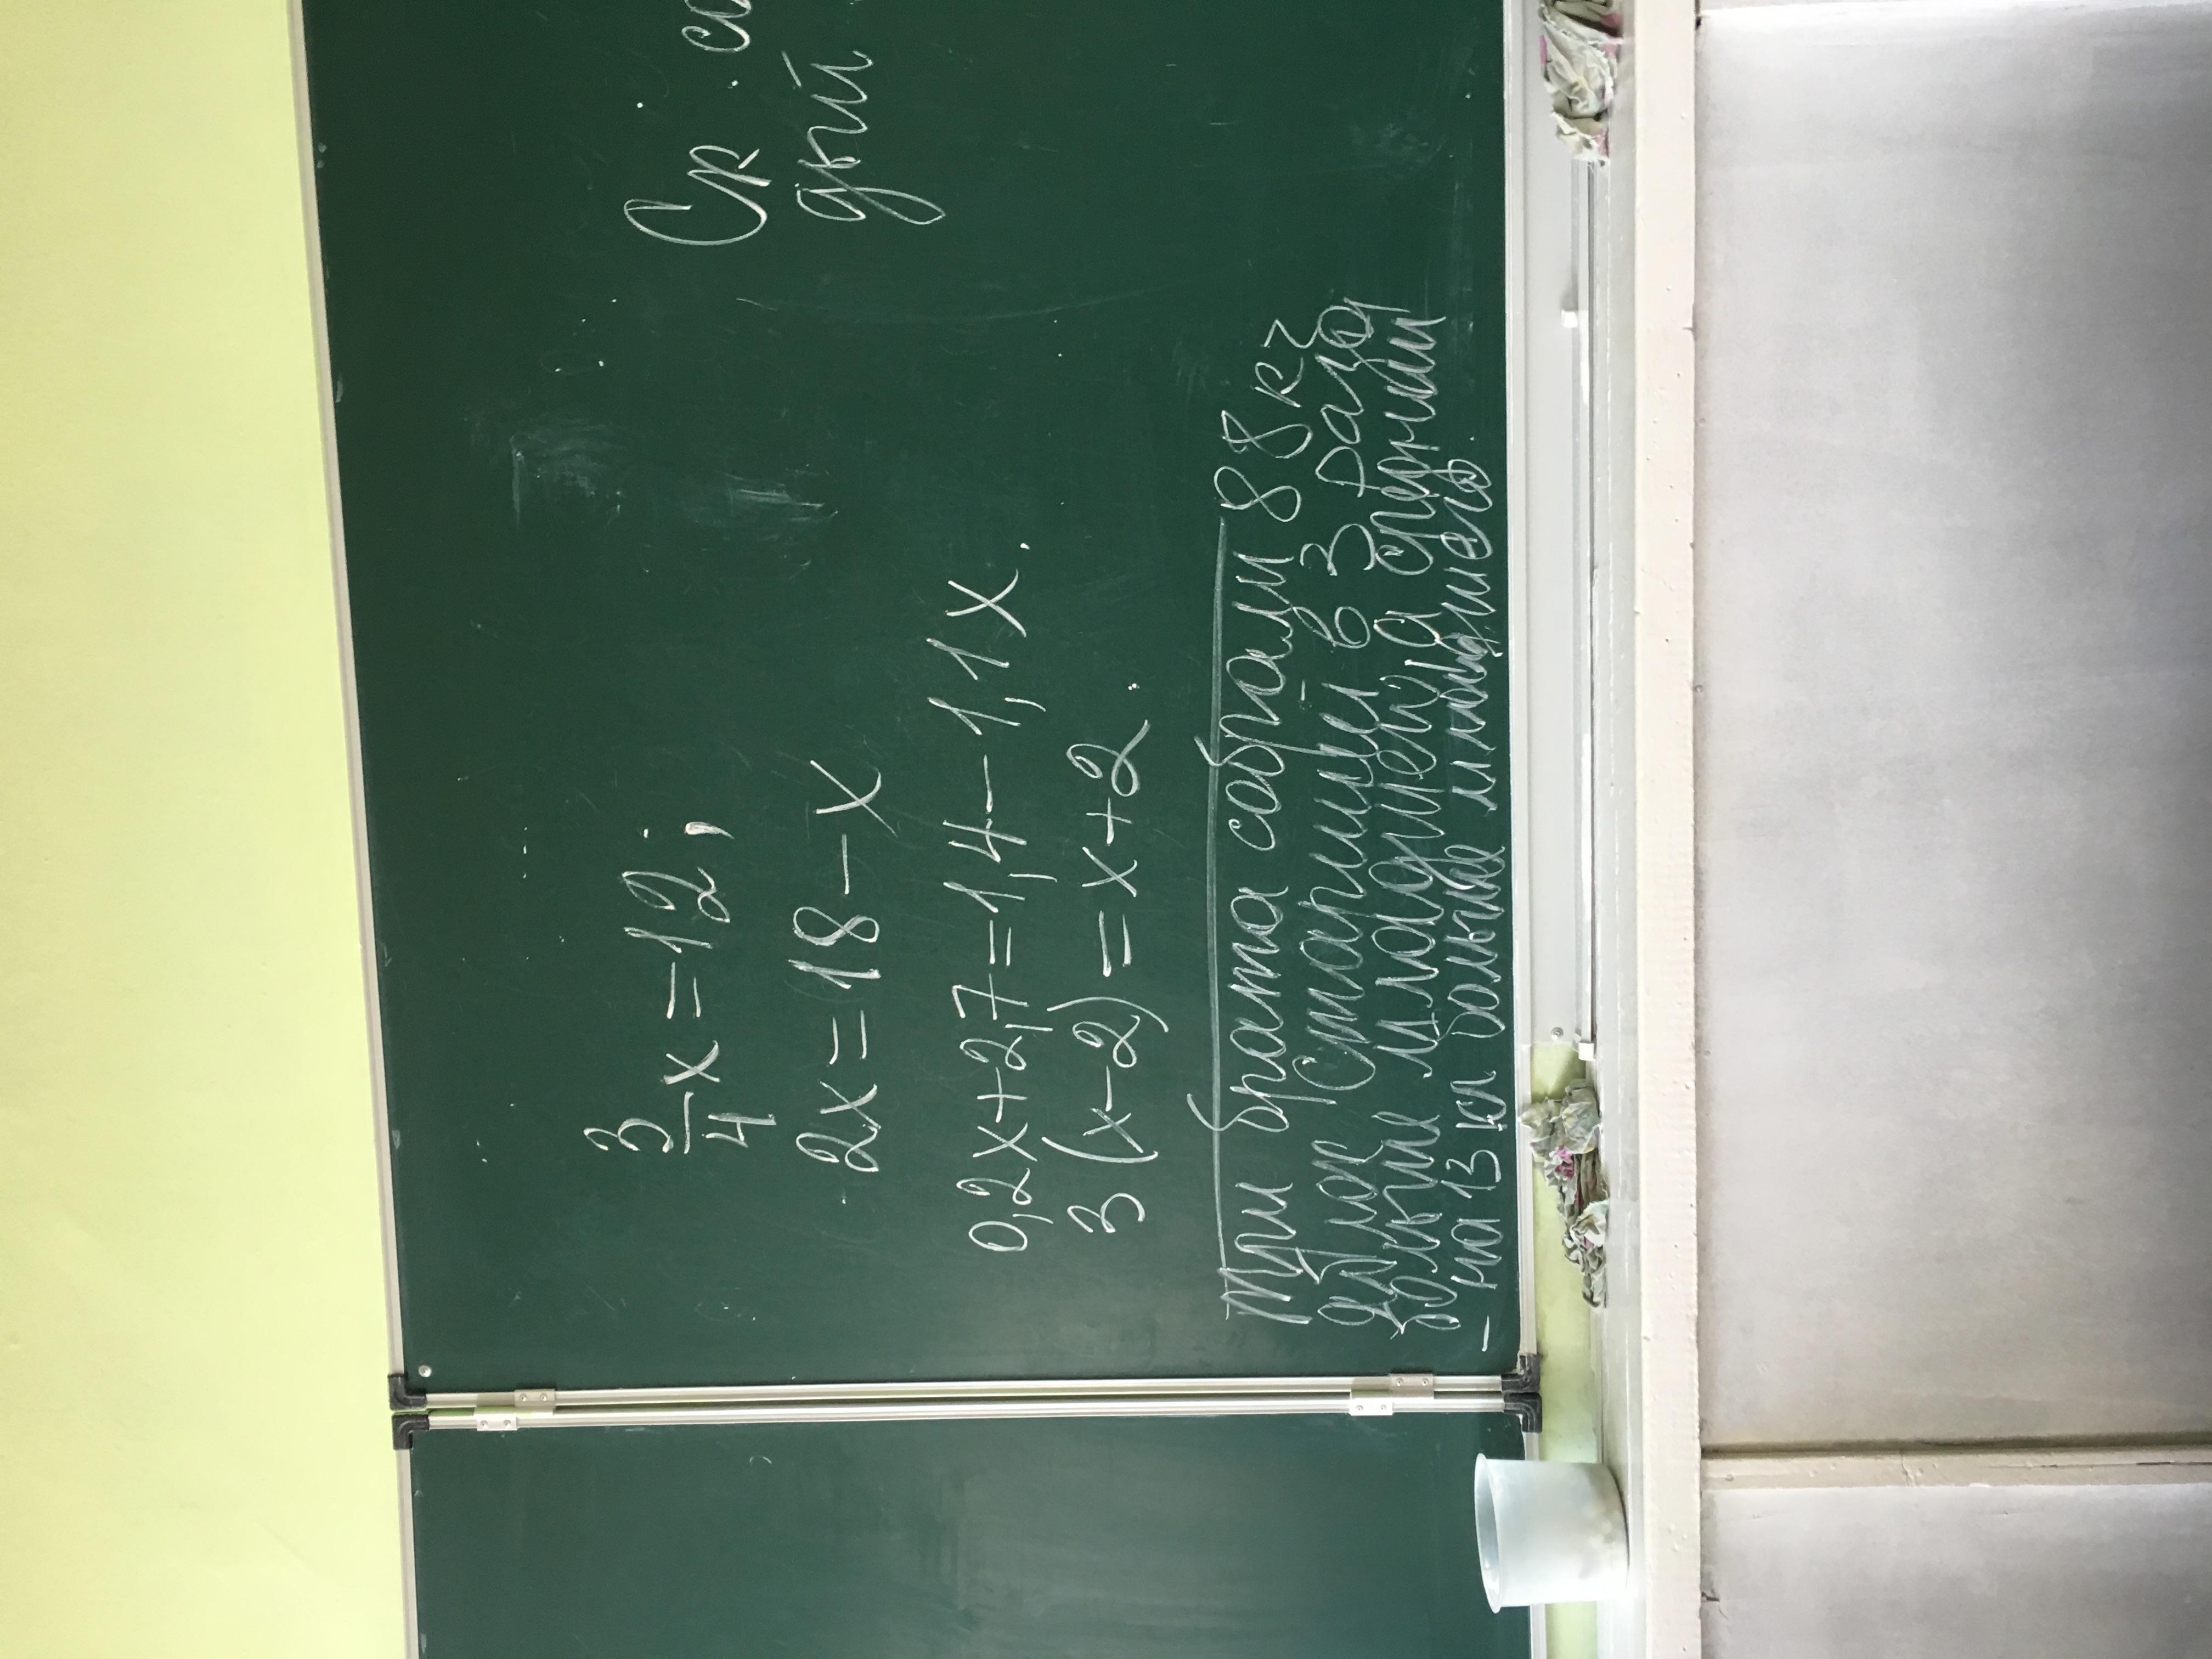 3/4 x = 12;
2x = 18 - x
0,2x + 2,7 = 1,4 - 1,1x.
3(x-2) = x+2.
три брата собрали 88 кг
яблок Старший в 3 раза
больше младшего, а средний
- на 13 кг больше младшего
Ск. со
дкий